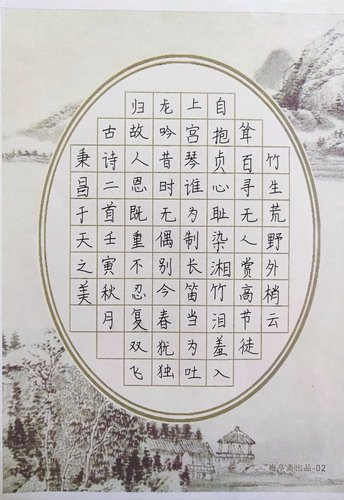 竹生荒野外梢云
耸百寻无人赏高节徒
自抱贞心耻染湘竹泪羞入
上宫琴谁为制长笛当为吐
龙吟昔时无偶别今春犹独
归故人恩既重不忍复双飞
古诗二首壬寅秋月
秉昌于天之美